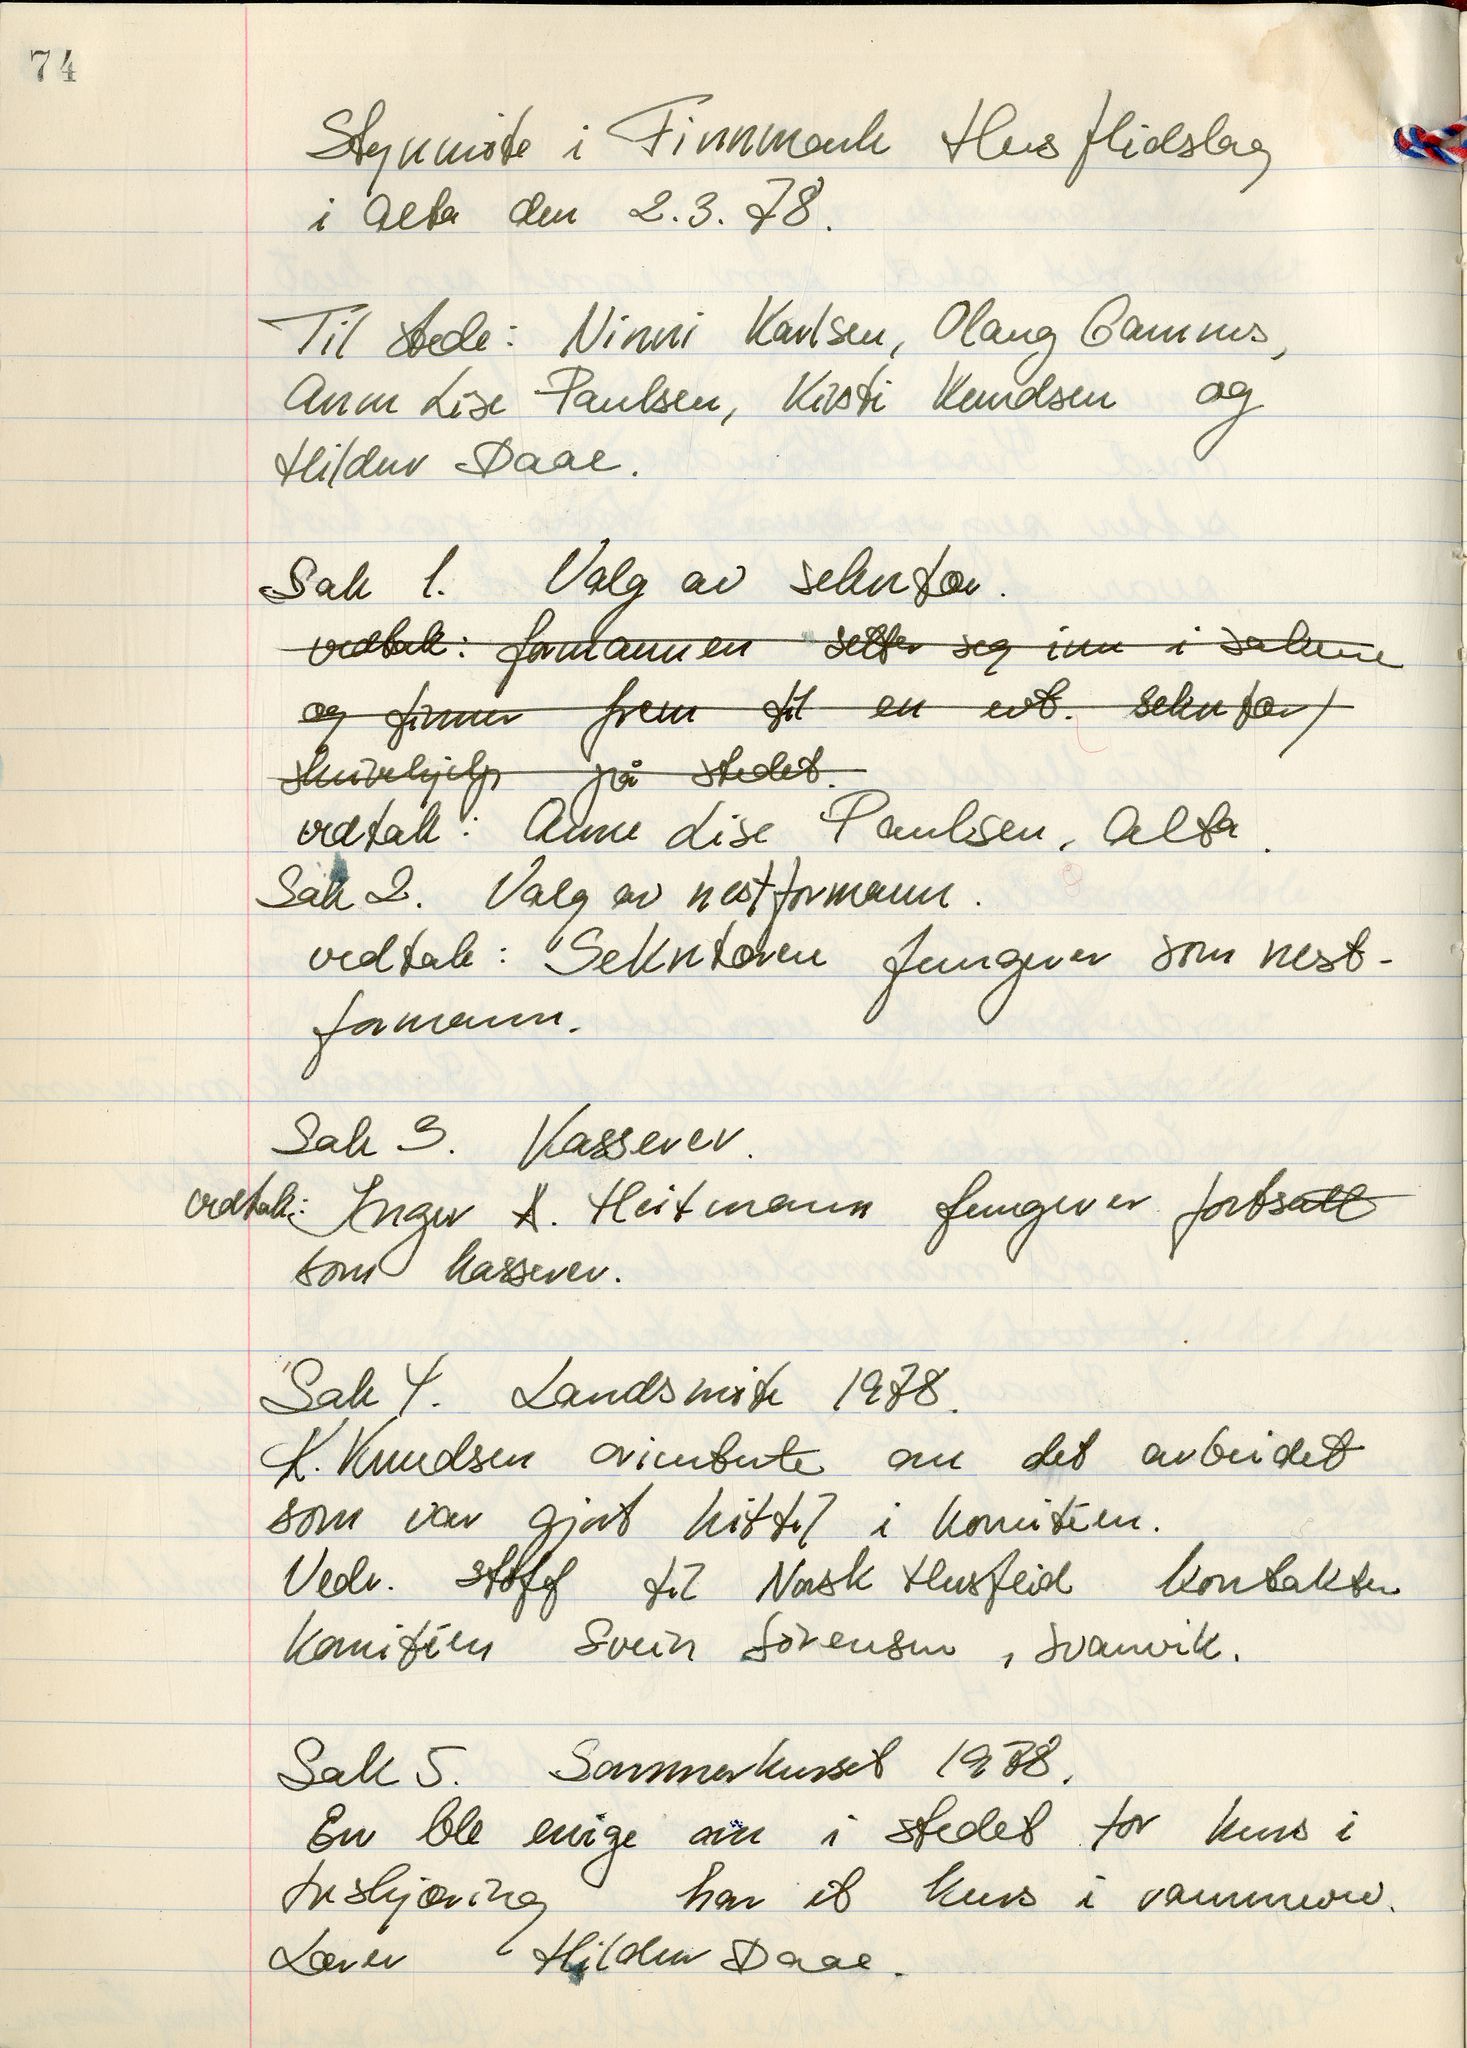 74
Styremöte i Finnmark Husflidslag
i Alta den 2.3.78.
Til stede: Ninni Karlsen, Olaug Gamnes,
Ann Lise Paulsen, Kirsti Knudsen og
Hildur Daae.
Sak 1. Valg av sekretær.
vedtak: formannen setter seg inn i sakene
og finner frem til en evt. sekretær/
skrivehjelp på stedet.
vedtak: Anne Lise Paulsen, Alta.
Sak 2. Valg av nestformann.
vedtak: Sekretæren fungerer som nest-
formann.
Sak 3. Kasserer.
vedtak: Inger A. Heitmann fungerer fortsatt
som kasserer.
Sak 4. Landsmöte 1978.
K. Knudsen orienterte om det arbeidet
som var gjort hittil i komitéen.
Vedr. stoff til Norsk Husflid kontakter
Komitéen Svein Sörensen, Svanvik.
Sak 5. Sommerkurset 1978.
En ble enige om i stedet for kurs i
treskjæring har et kurs i rammevev.
Lærer Hildur Daae.